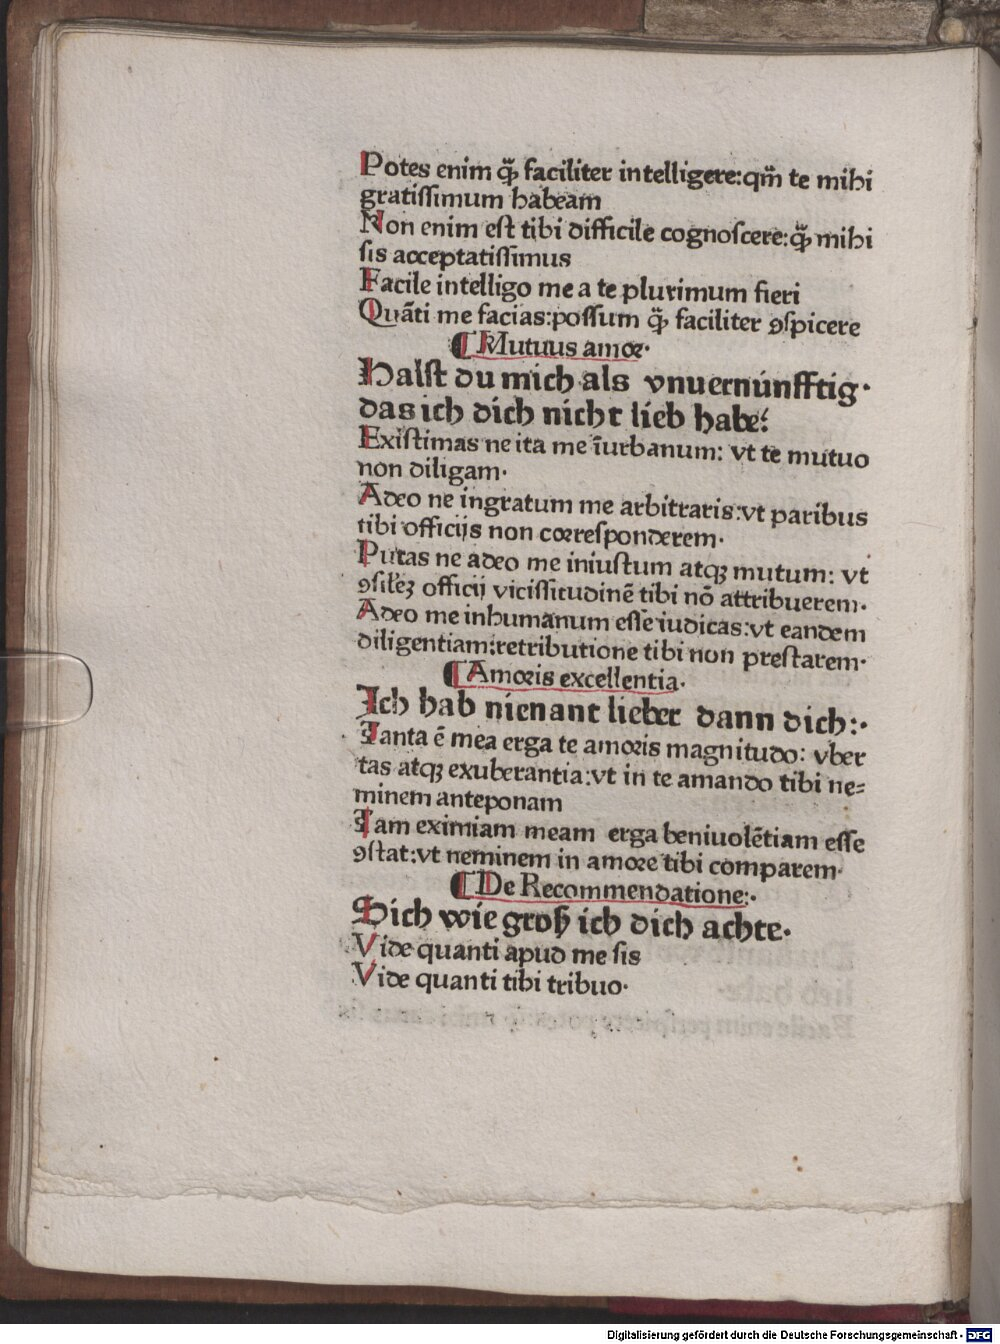 Potes enim qͣ̈ faciliter intelligere:qm̄ te mihi
gratiſſimum habeam
Non enim eſt tibi difficile cognoſcere:qͣ̈ mihi
ſis acceptatiſſimus
Facile intelligo me a te plurimum fieri
Quāti me facias:poſſum qͣ̈ faciliter ꝯſpicere
¶ Mutuus amoꝛ·
Halſt du mich als vnuernunfftig·
das ich dich nicht lieb habe?
Exiſtimas ne ita me īurbanum: vt te mutuo
non diligam·
Adeo ne ingratum me arbitraris:vt paribus
tibi officijs non coꝛreſponderem·
Putas ne adeo me iniuſtum atqꝫ mutum: vt
ꝯſileꝫ officij viciſſitudinē tibi nō attribuerem·
Adeo me inhumanum eſſe iudicas:vt eandem
diligentiam:retributione tibi non preſtarem·
¶ Amoꝛis excellentia·
Ich hab nienant lieber dann dich:·
Tanta ē mea erga te amoꝛis magnitudo: vber
tas atqꝫ exuberantia:vt in te amando tibi ne⸗
minem anteponam
Tam eximiam meam erga beniuolētiam eſſe
ꝯſtat:vt neminem in amoꝛe tibi comparem·
¶ De Recommendatione:·
Sich wie groß ich dich achte·
Vide quanti apud me ſis
Vide quanti tibi tribuo·
Digitalisierung gefördert durch die Deutsche Forschungsgemeinschaft - DFG